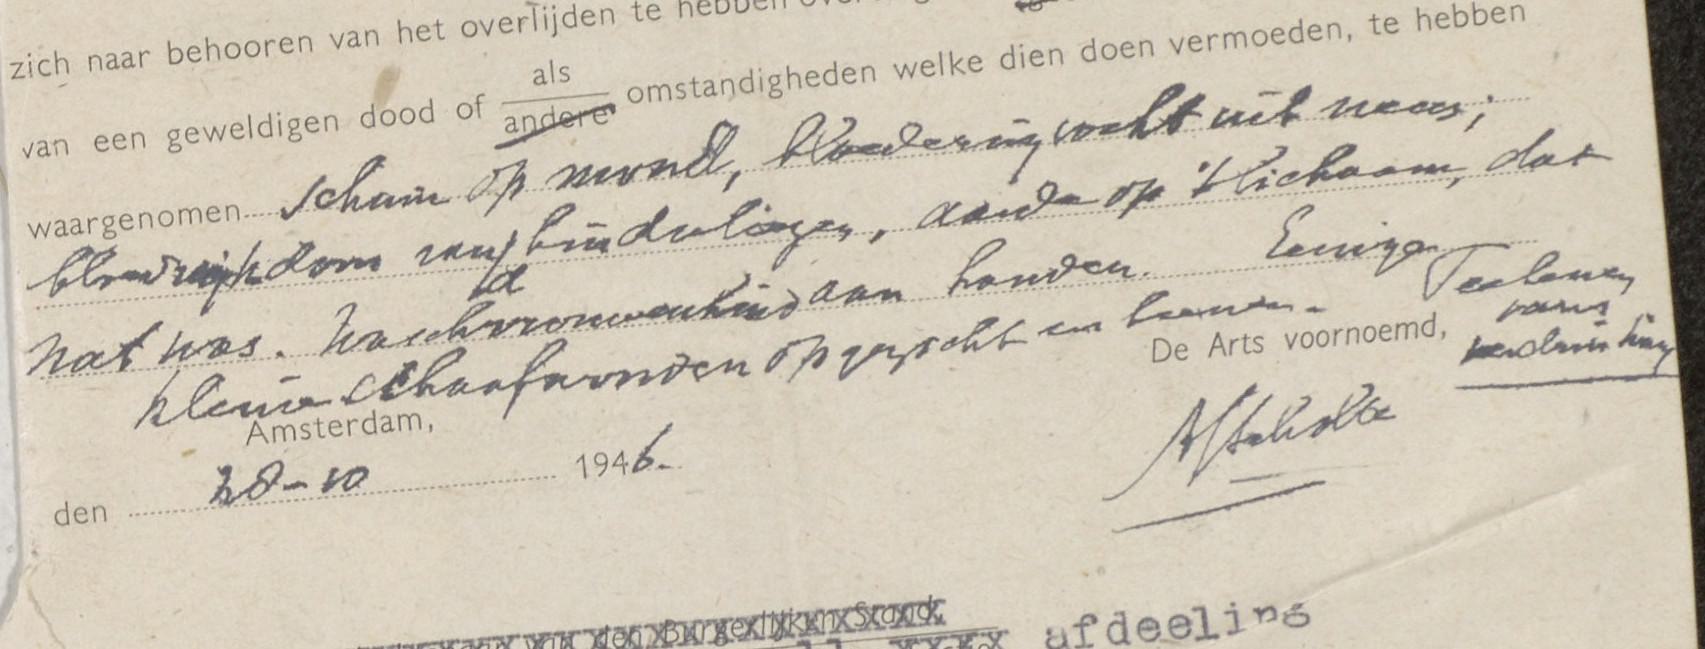 zich naar behooren van het overlijden te hebben
van een geweldigen dood of als omstandigheden welke dien doen vermoeden, te hebben
andere
waargenomen schuim op mond, bloederig vocht uit neus;
bloedrijkdom van bindvliezen, aarde op 't lichaam, dat
nat was. Waschvrouwenhuid aan handen. Eenige
kleine schaafwonden op gezicht en beenen.
Teekenen
van
verdrinking
De Arts voornoemd,
Amsterdam,
den 28-10 1946.
AScholte
van den Burgerlijken Stand,
afdeeling